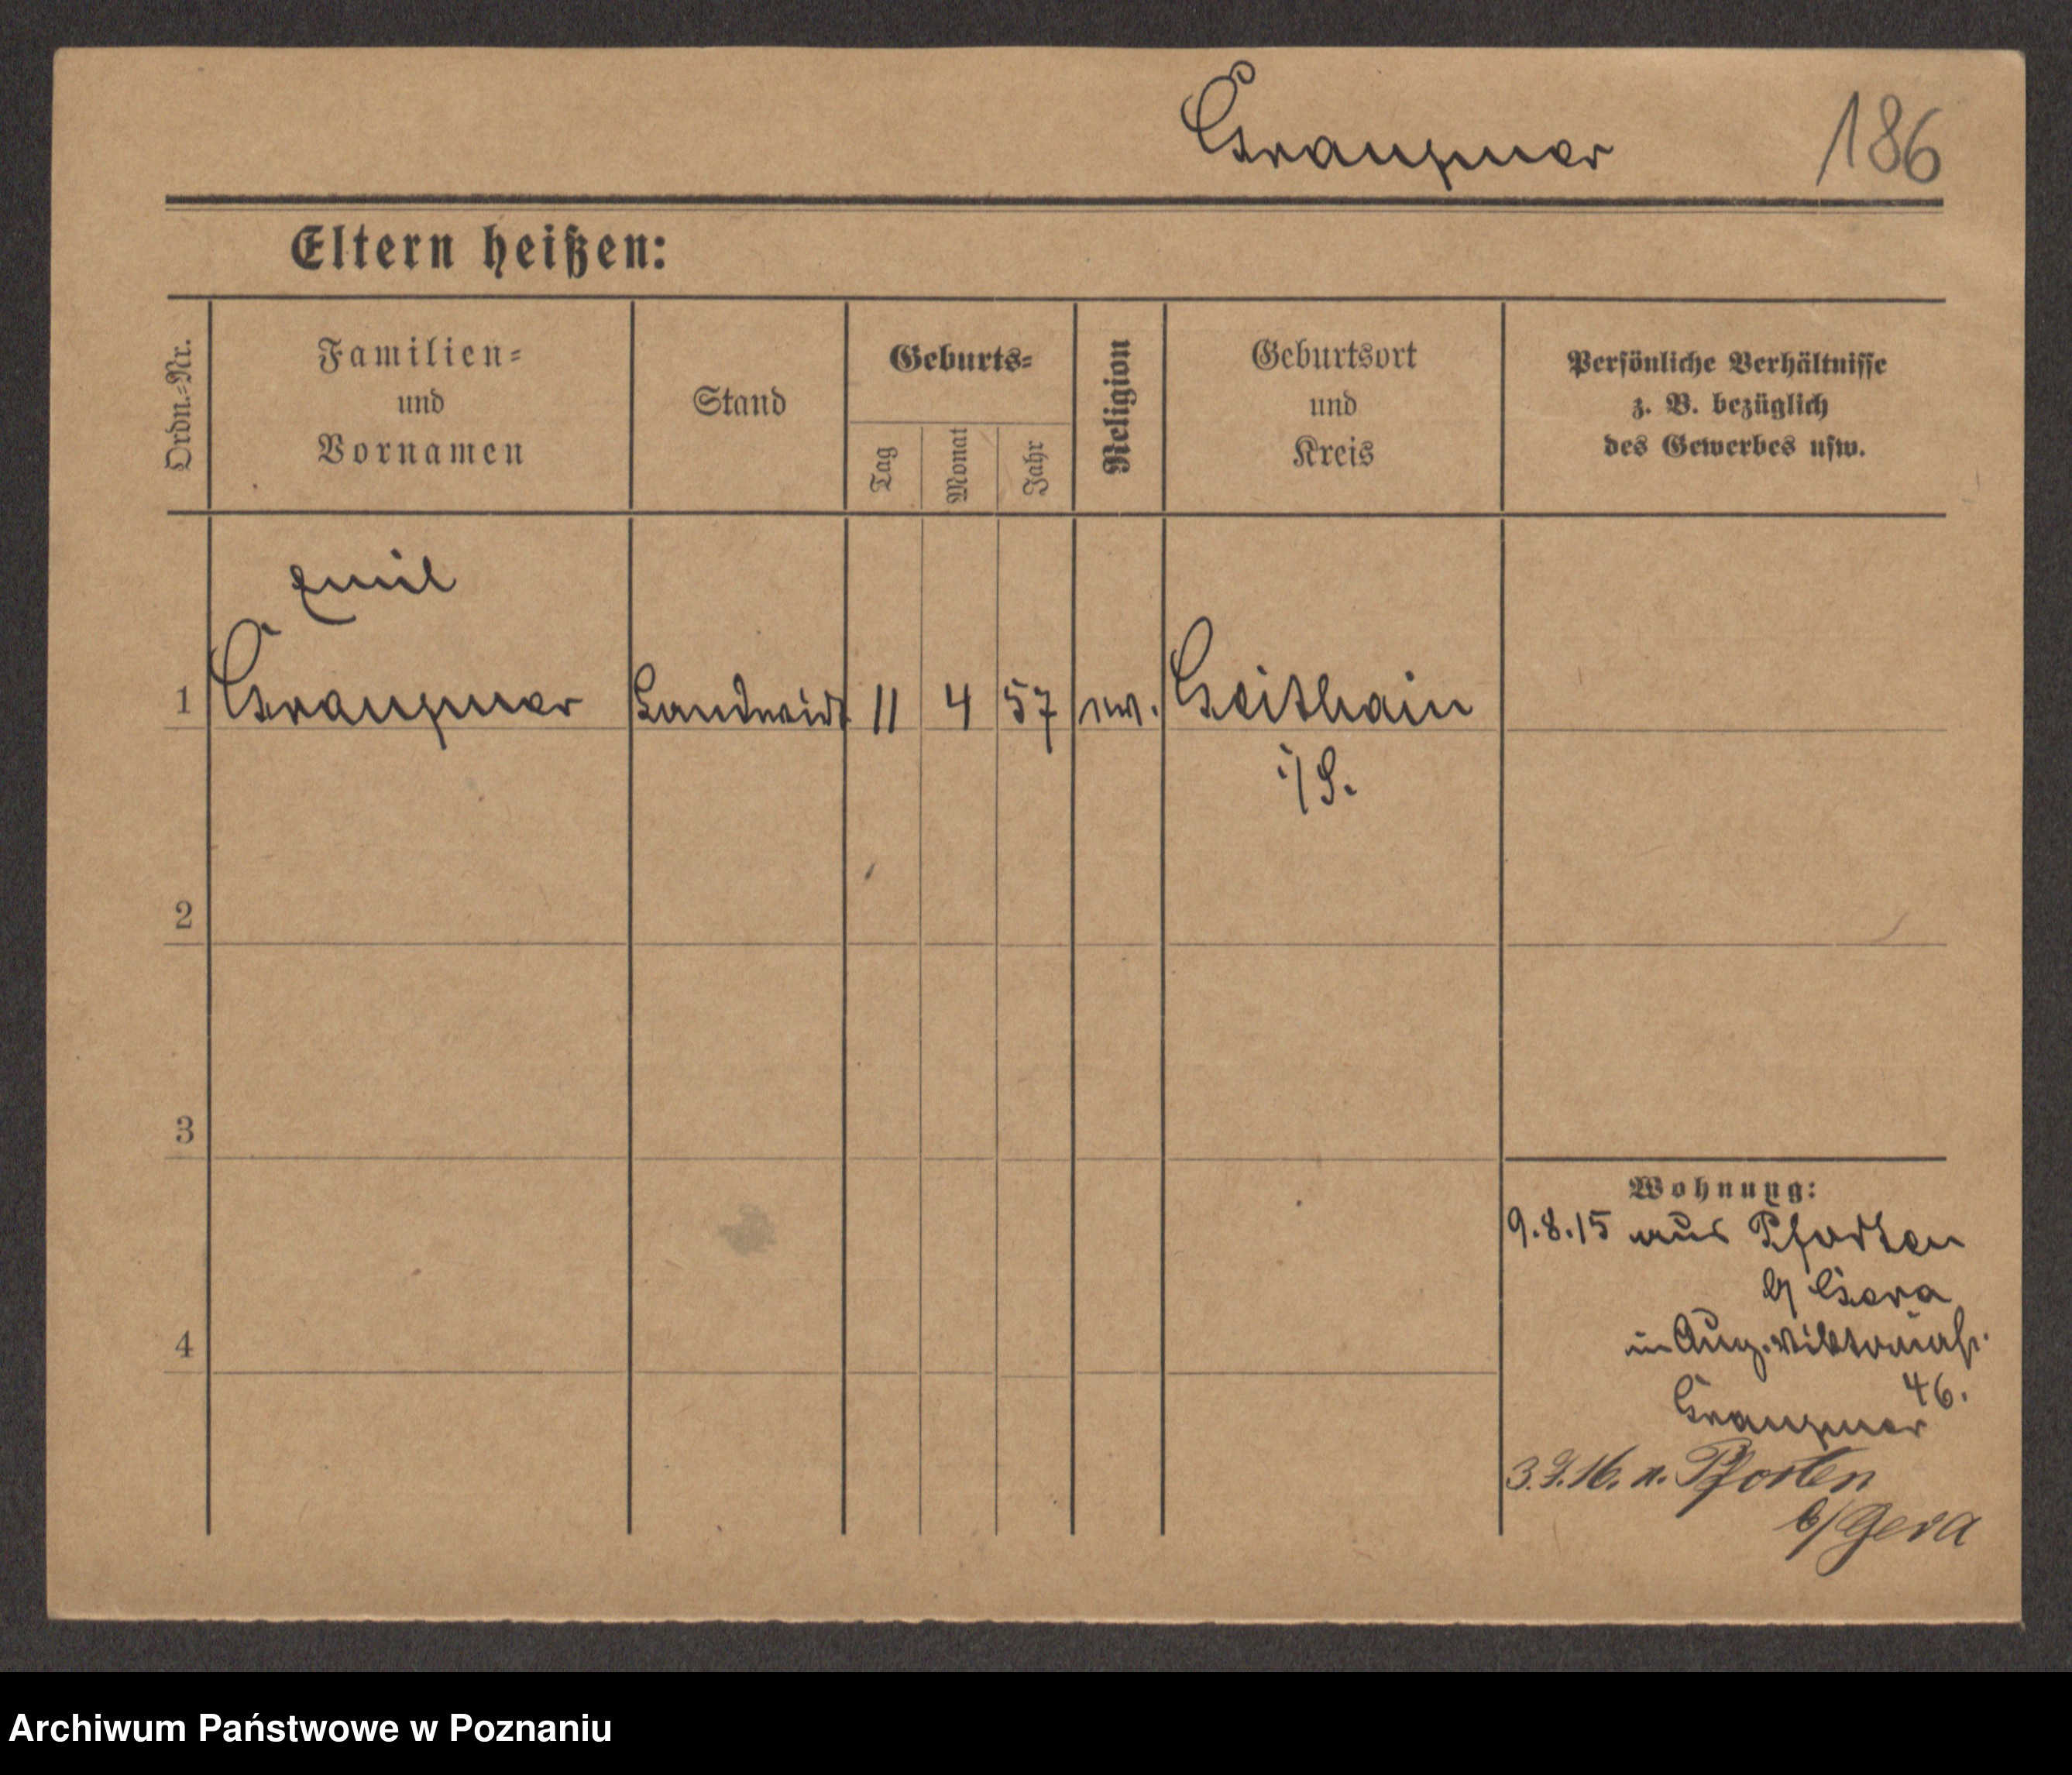 Graupner 186
Eltern heißen:
Ordn.-Nr.
Familien-
und
Vornamen
Stand
Geburts-
Tag
Monat
Jahr
Religion
Geburtsort
und
Kreis
Persönliche Verhältnisse
z. B. bezüglich
des Gewerbes usw.
Emil
1 Graupner Landwirt 11 4 57 ev. Geithain
i/S.
2
3
4
Wohnung:
9.8.15 aus Pforten
b/ Gera
in Aug. Viktoriast.
46.
Graupner
3.7.16. n. Pforten
b/Gera
Archiwum Państwowe w Poznaniu